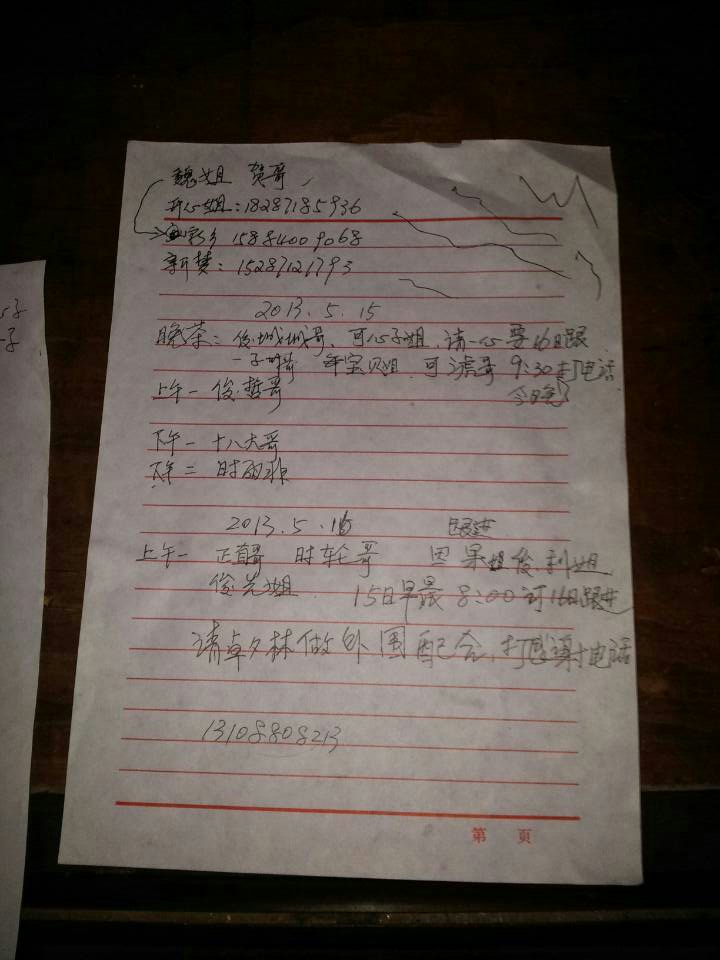 魏姐 贺哥
开心姐：18287185936
家乡 15884009068
新梦：15287121793
2013.5.15
晚茶：俊城城哥、可心子姐、请一心要16日跟
一子明哥 年宝贝姐 可滤哥 9:30打电话
上午一 俊哲哥 今日晚
下午一 十八大哥
下午二 时雨非
2013.5.16 跟进
上午一 正首哥 时轮哥 因果姐俊利姐
俊先姐 15日早晨8:00讨16日跟进
请卓夕林做外围配合、打感谢电话
13108808213
第 页